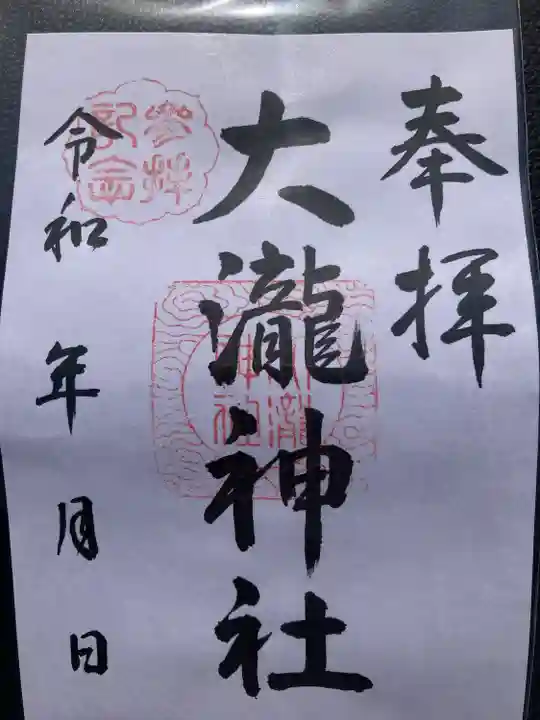 奉拝
大瀧神社
令和 年 月 日
参拝
記念
大瀧
神社